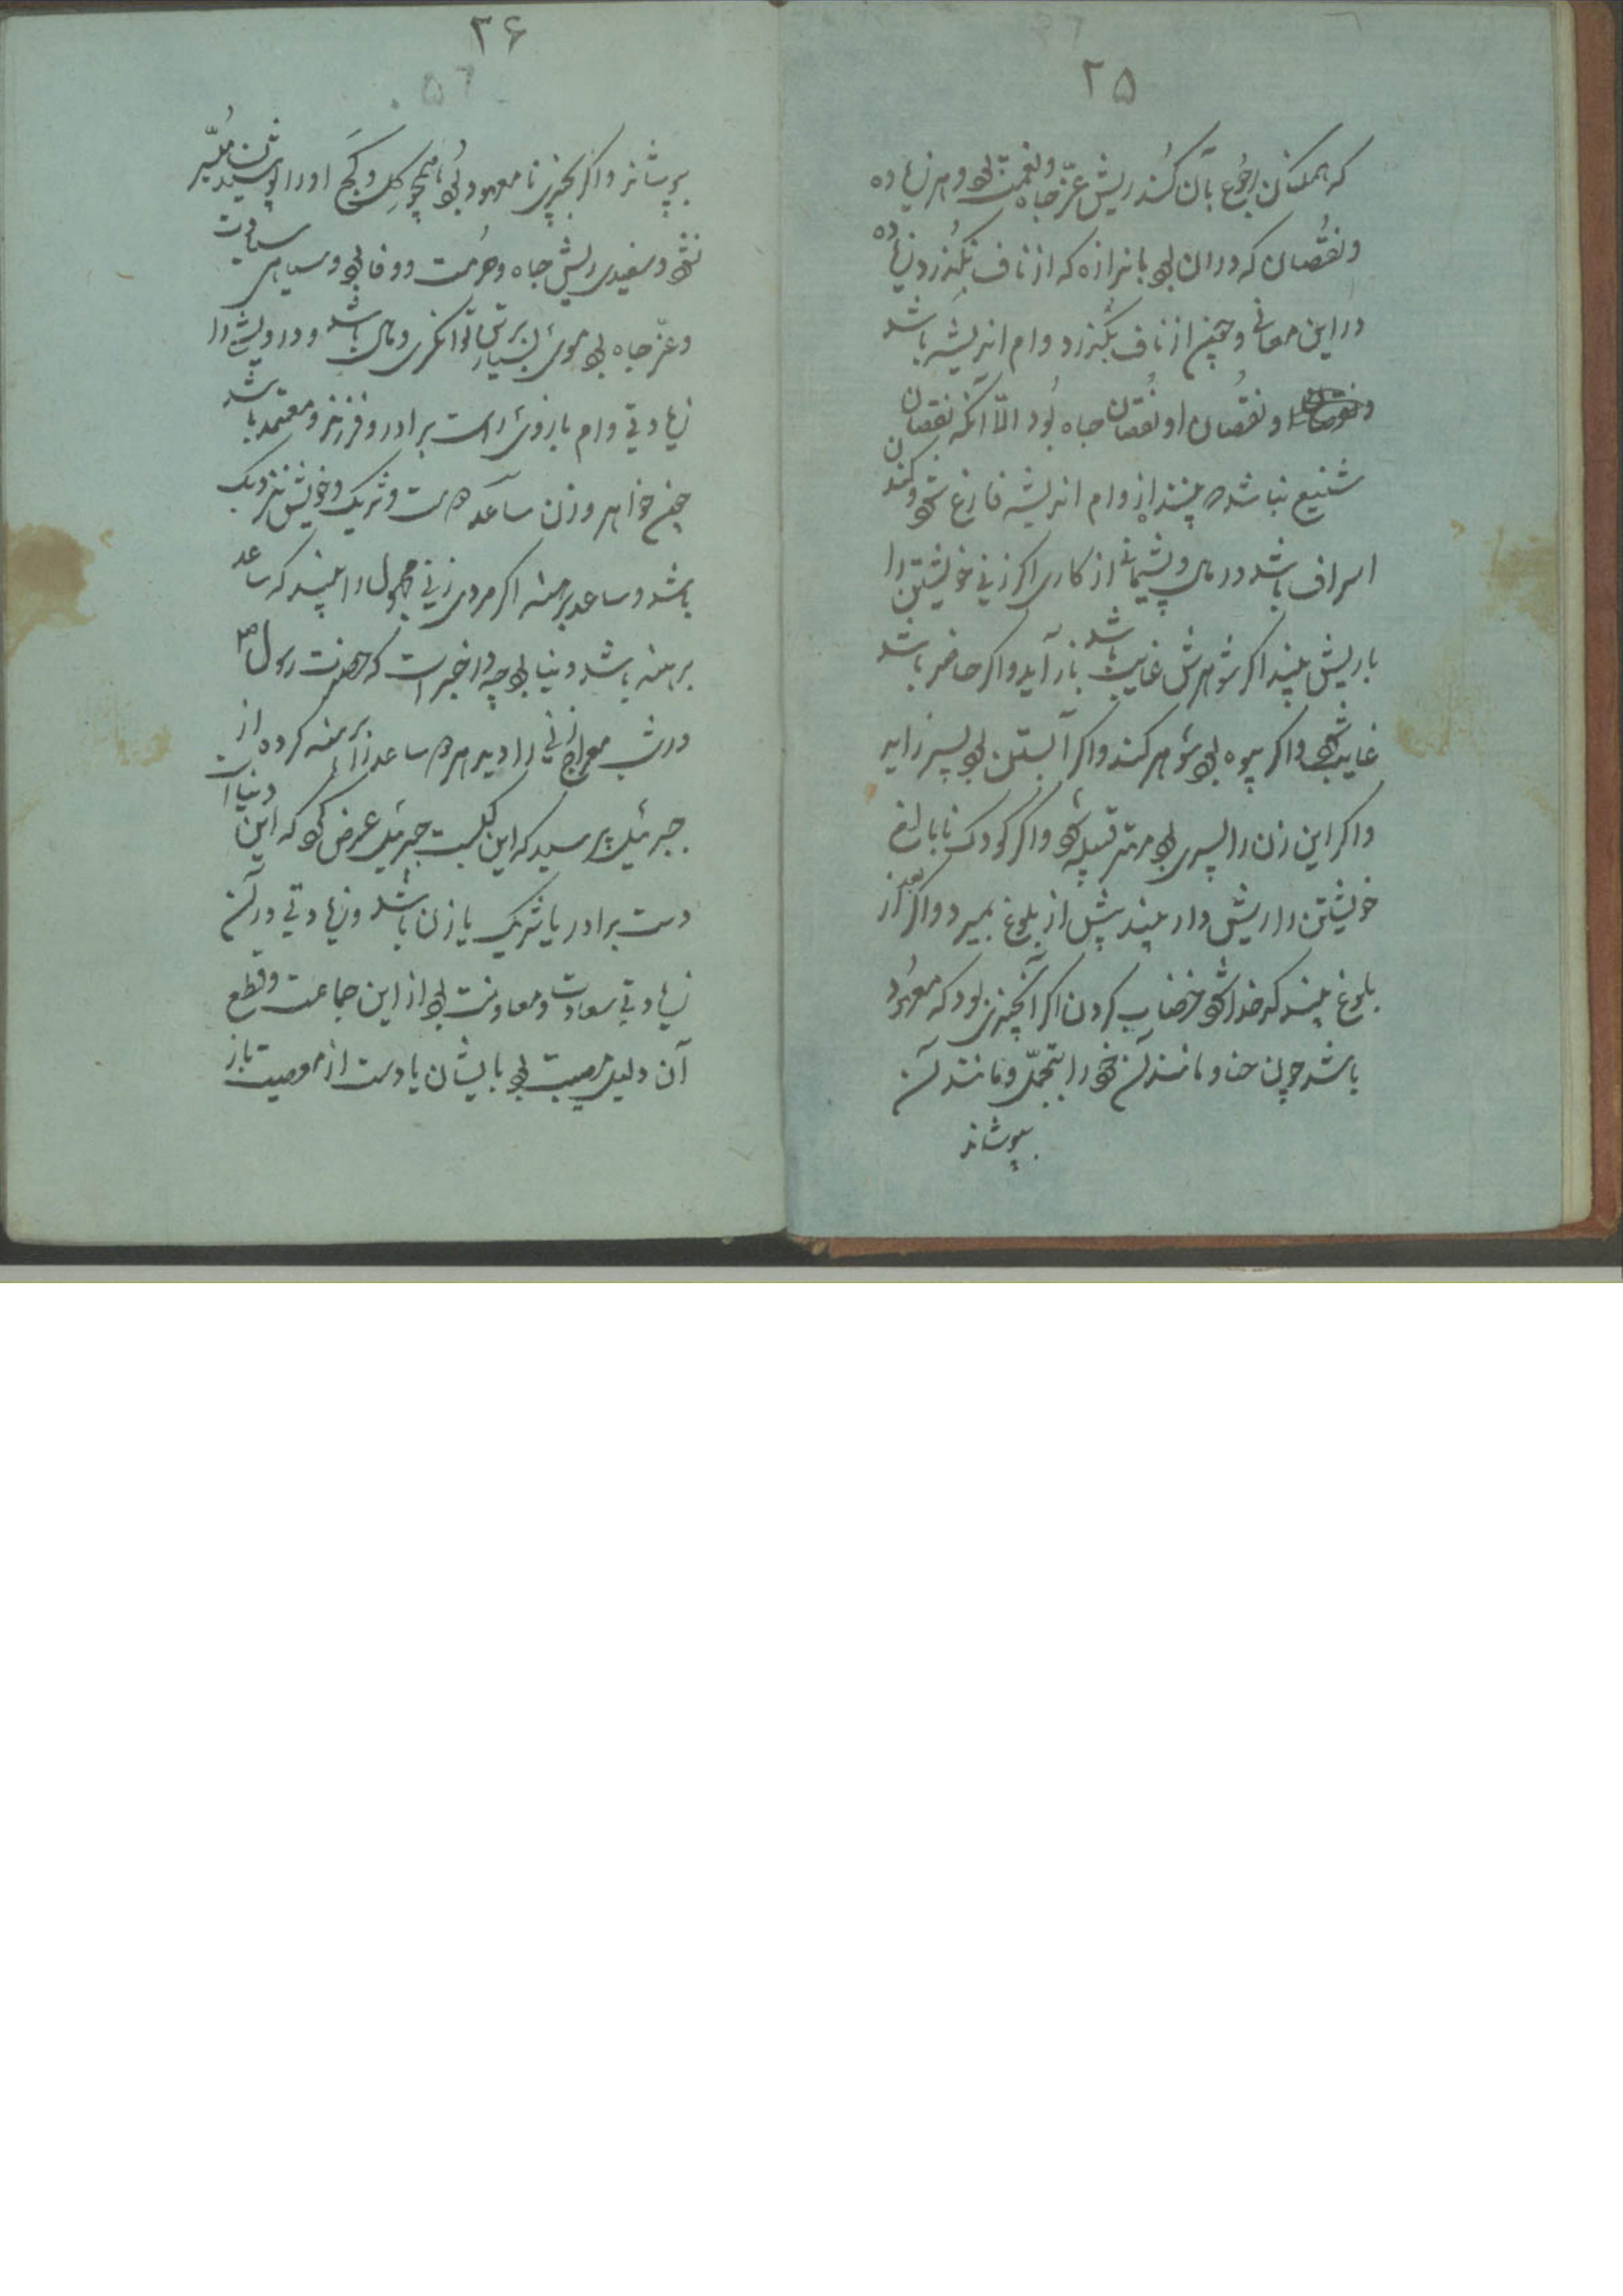 ۲۵
که همکنان رجوع بآن کنند ریش عزّ و جاه و نعمت بود و هر زیاده
و نقصان که در ان بود باندازه که از ناف نگذرد زیاده
در این معانی و چون از ناف بگذرد وام اندیشه باشد
و نقصان او نقصان جاه بود الّا آنکه نقصان
شنیع نباشد چند از وام اندیشه فارغ شود و کند
اسراف باشد در مال و پشیمانی از کاری اگر زنی خویشتن را
با ریش بیند اگر شوهرش غایب باشد باز آید و اگر حاضر باشد
غایب شود و اگر بیوه بود شوهر کند و اگر آبستن بود پسر زاید
و اگر این زن را پسری بود مهتر قبیله شود و اگر کودک نابالغ
خویشتن را ریش دار بیند پیش از بلوغ بمیرد و اگر بعد از
بلوغ بیند کدخدا شود خضاب کردن اگر آنچیزی بود که معهود
باشد چون حنا و مانند آن خود را بتجمّل و مانند آن
بپوشاند
۳۶
بپوشاند و اگر بچیزی نامعهود بود همچو گل و گچ او را پوشیدن میسّر
نشود و سفیدی ریش جاه و حرمت و وفا بود و سیاهی
و عزّ جاه بود موی بسیار بر تن توانگری و مال باشد و درویش را
زیادتی وام بازوی راست برادر و فرزند و معتمد باشد
چپ خواهر و زن ساعد دوست و شریک و خویش نزدیک
باشد و ساعد برهنه اگر مردی زنی مجهول را بیند که ساعد
برهنه باشد دنیا بود چه در خبر است که حضرت رسول ص
در شب معراج زنی را دید هر دو ساعد را برهنه کرده از
جبرئیل پرسید که این کیست جبرئیل عرض کرد که این دنیا است
دست برادر یا شریک یا زن باشد و زیادتی در آن
زیادتی سعادت و معاونت بود از این جماعت و قطع
آن دلیل مصیبت بود بایشان یا دست از معصیت باز